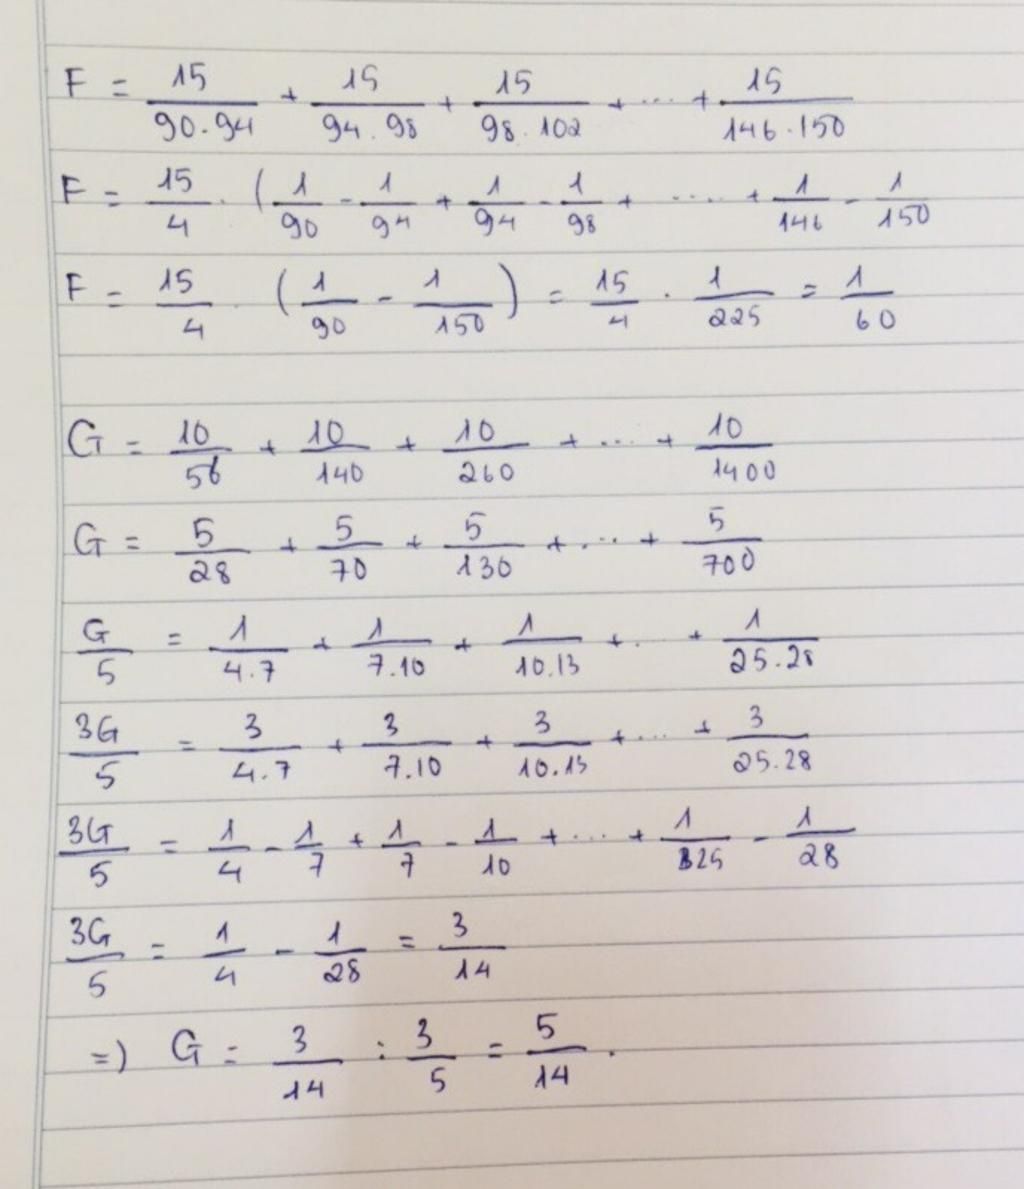 F = 15/90.94 + 15/94.98 + 15/98.102 + ... + 15/146.150
F = 15/4 . (1/90 - 1/94 + 1/94 - 1/98 + ..... + 1/146 - 1/150
F = 15/4 . (1/90 - 1/150) = 15/4 . 1/225 = 1/60
G = 10/56 + 10/140 + 10/260 + ... + 10/1400
G = 5/28 + 5/70 + 5/130 + ... + 5/700
G/5 = 1/4.7 + 1/7.10 + 1/10.13 + ... + 1/25.28
3G/5 = 3/4.7 + 3/7.10 + 3/10.13 + ... + 3/25.28
3G/5 = 1/4 - 1/7 + 1/7 - 1/10 + ... + 1/25 - 1/28
3G/5 = 1/4 - 1/28 = 3/14
=) G = 3/14 : 3/5 = 5/14 .